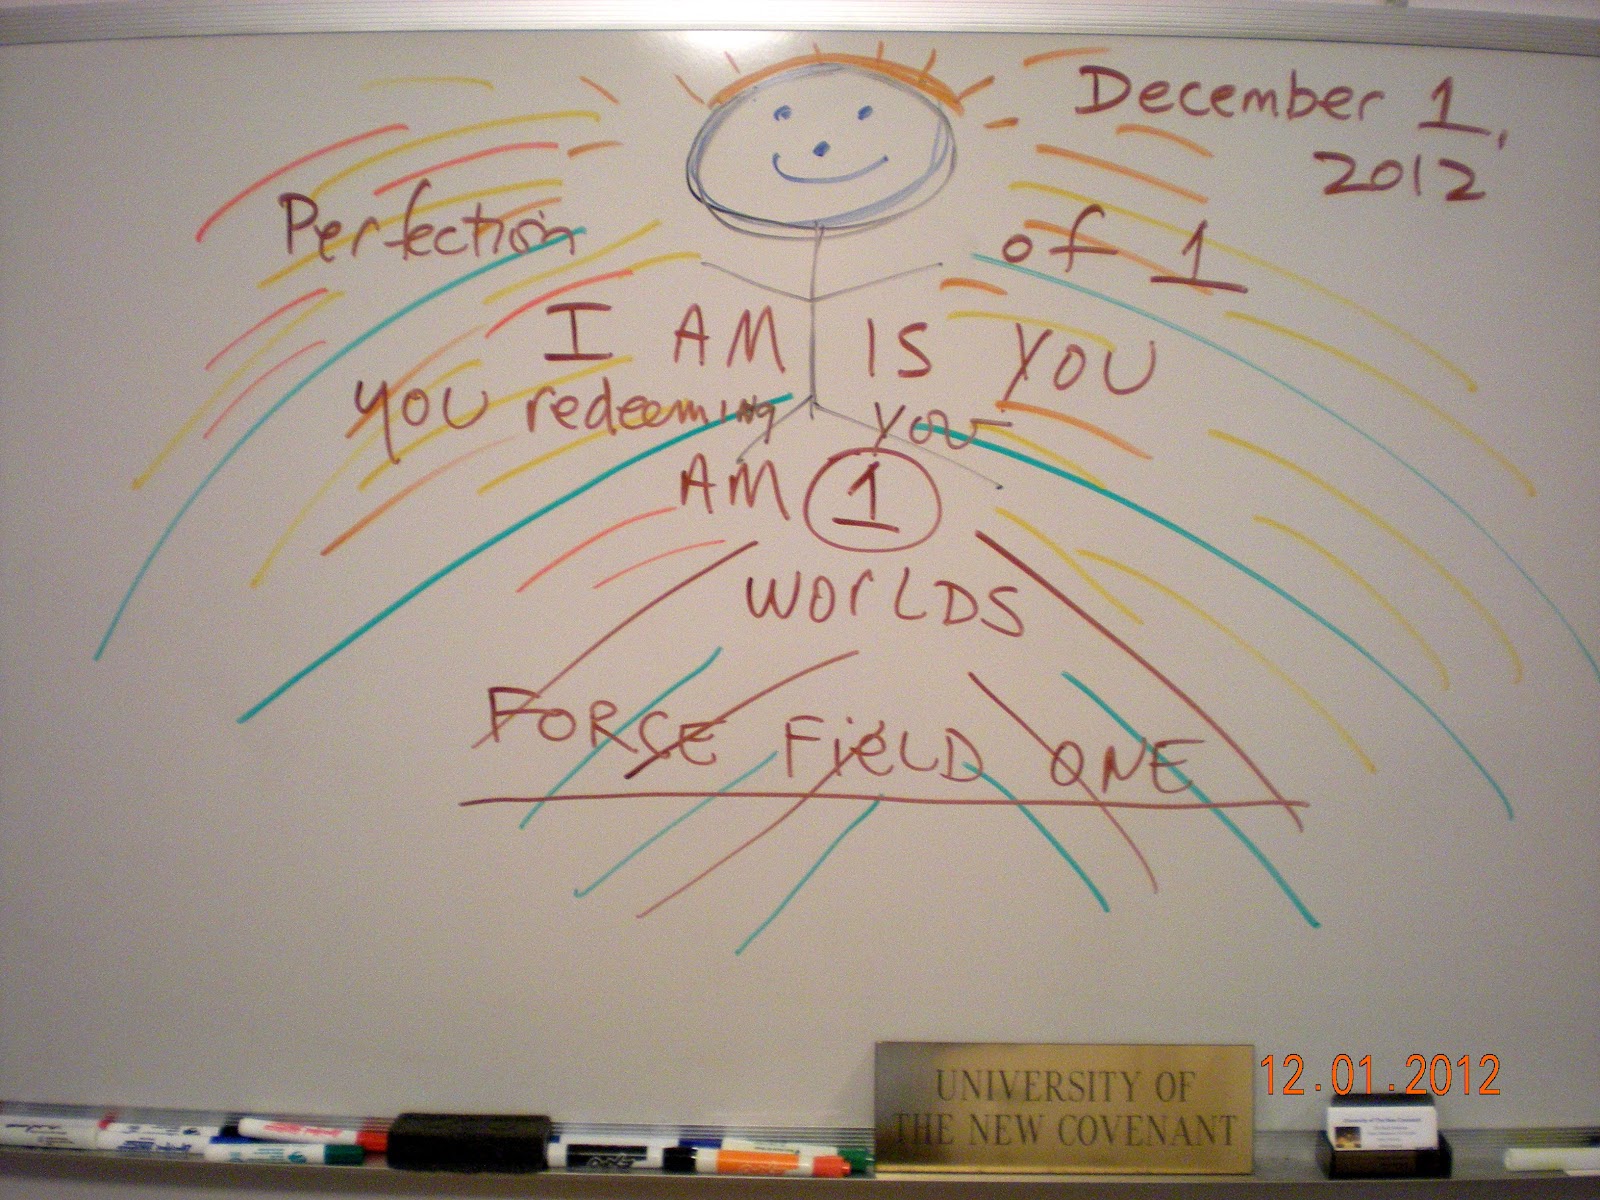 December 1,
2012
Perfection of 1
I AM IS YOU
YOU redeeming YOU
AM 1
WORLDS
FORSE FiELD ONE
UNIVERSITY OF
THE NEW COVENANT
12.01.2012
University of The New Covenant